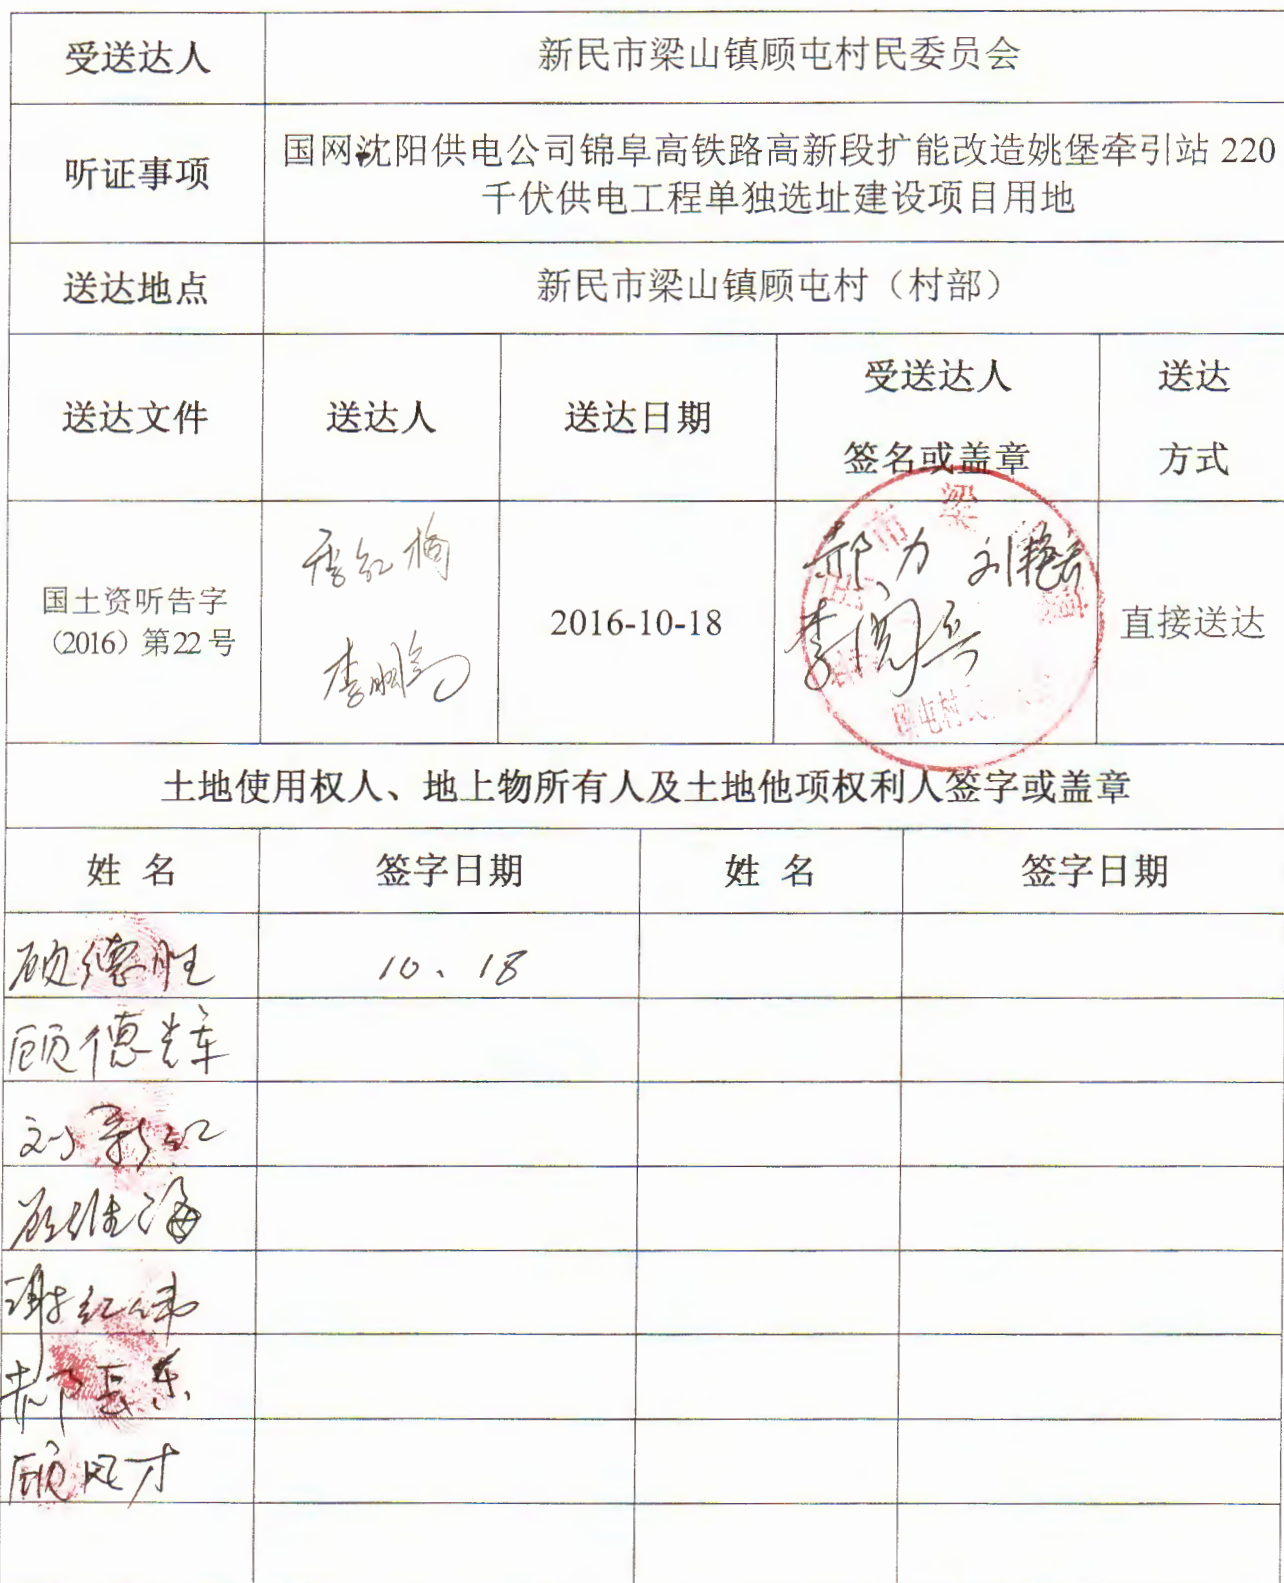 受送达人
新民市梁山镇顾屯村民委员会
听证事项
国网沈阳供电公司锦阜高铁路高新段扩能改造姚堡牵引站 220
千伏供电工程单独选址建设项目用地
送达地点
新民市梁山镇顾屯村（村部）
送达文件
送达人
送达日期
受送达人
签名或盖章
送达
方式
国土资听告字
（2016）第22号
李鹏
2016-10-18
郝力
直接送达
市梁
顾屯村民
土地使用权人、地上物所有人及土地他项权利人签字或盖章
姓 名
签字日期
姓 名
签字日期
顾德胜
10、18
顾德辉
刘新红
顾维海
谢红伟
郝长东
顾风才